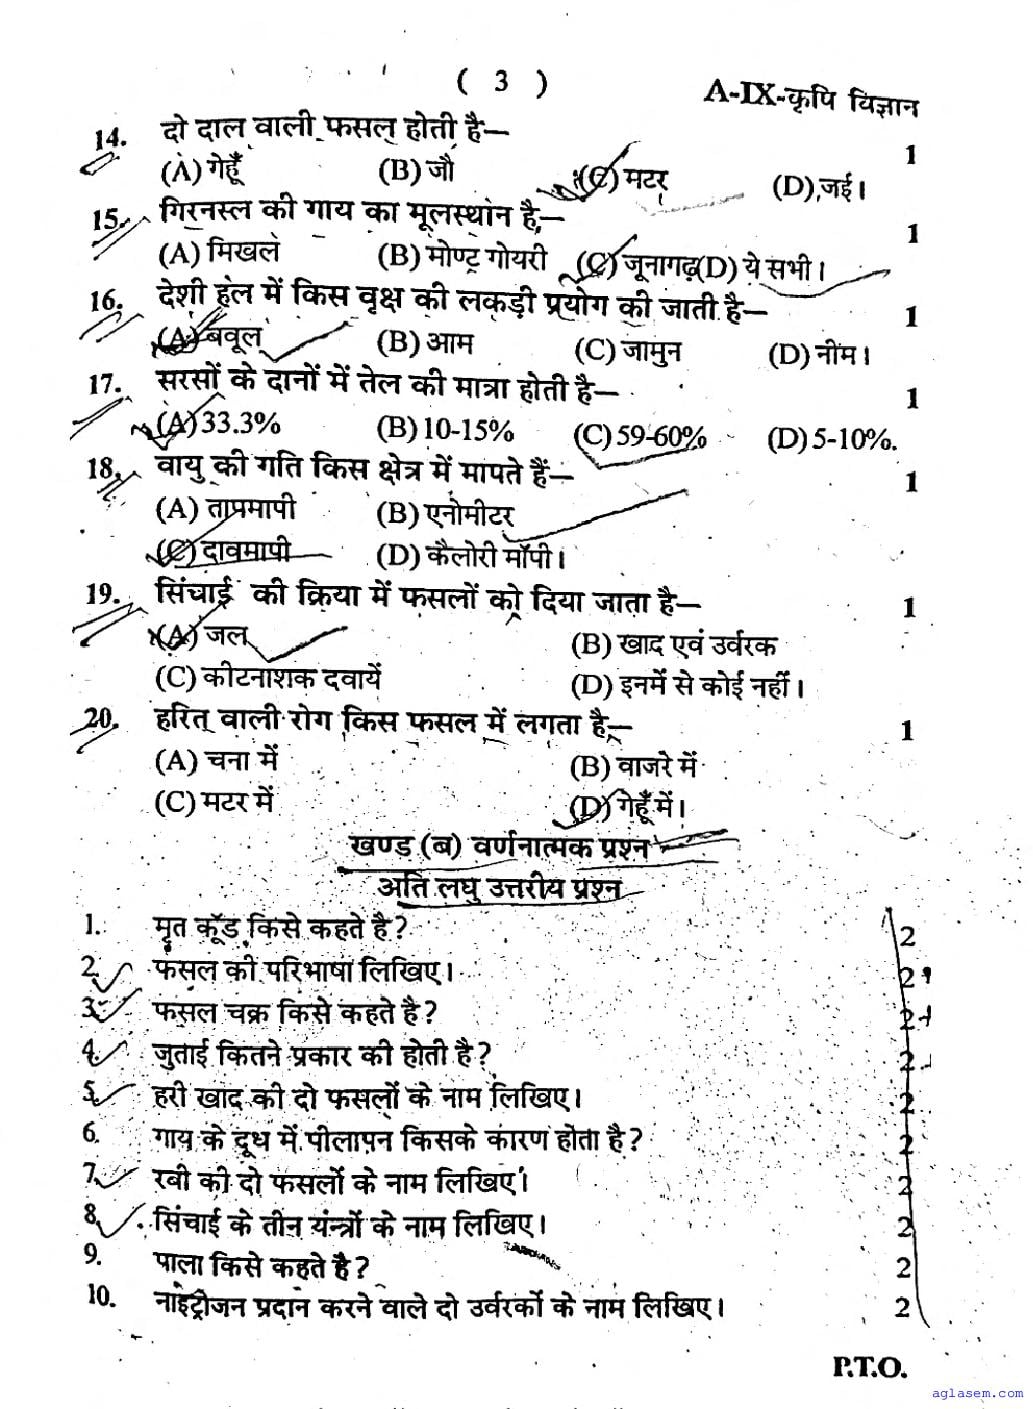 ( 3 )
A-IX-कृषि विज्ञान
14. दो दाल वाली फसल होती है— 1
(A) गेहूँ (B) जौ (C) मटर (D) जई।
15. गिरनस्ल की गाय का मूलस्थान है,— 1
(A) मिखले (B) मोण्ट गोयरी (C) जूनागढ़ (D) ये सभी।
16. देशी हल में किस वृक्ष की लकड़ी प्रयोग की जाती है— 1
(A) बवूल (B) आम (C) जामुन (D) नीम।
17. सरसों के दानों में तेल की मात्रा होती है— 1
(A) 33.3% (B) 10-15% (C) 59-60% (D) 5-10%.
18. वायु की गति किस क्षेत्र में मापते हैं— 1
(A) तापमापी (B) एनोमीटर
(C) दावमापी (D) कैलोरी मॉपी।
19. सिंचाई की क्रिया में फसलों को दिया जाता है— 1
(A) जल (B) खाद एवं उर्वरक
(C) कीटनाशक दवायें (D) इनमें से कोई नहीं।
20. हरित् वाली रोग किस फसल में लगता है,— 1
(A) चना में (B) वाजरे में
(C) मटर में (D) गेहूँ में।
खण्ड (ब) वर्णनात्मक प्रश्न
अति लघु उत्तरीय प्रश्न
1. मृत कूँड किसे कहते है? 2
2. फसल की परिभाषा लिखिए। 2
3. फसल चक्र किसे कहते है? 2
4. जुताई कितने प्रकार की होती है? 2
5. हरी खाद की दो फसलों के नाम लिखिए। 2
6. गाय के दूध में पीलापन किसके कारण होता है? 2
7. रबी की दो फसलों के नाम लिखिए। 2
8. सिंचाई के तीन यंन्त्रों के नाम लिखिए। 2
9. पाला किसे कहते है? 2
10. नाइट्रोजन प्रदान करने वाले दो उर्वरकों के नाम लिखिए। 2
P.T.O.
aglasem.com